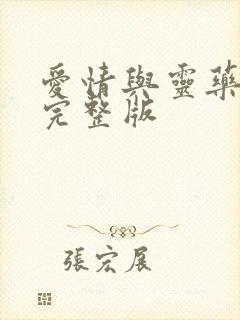 愛情與靈藥
完整版
張宏展